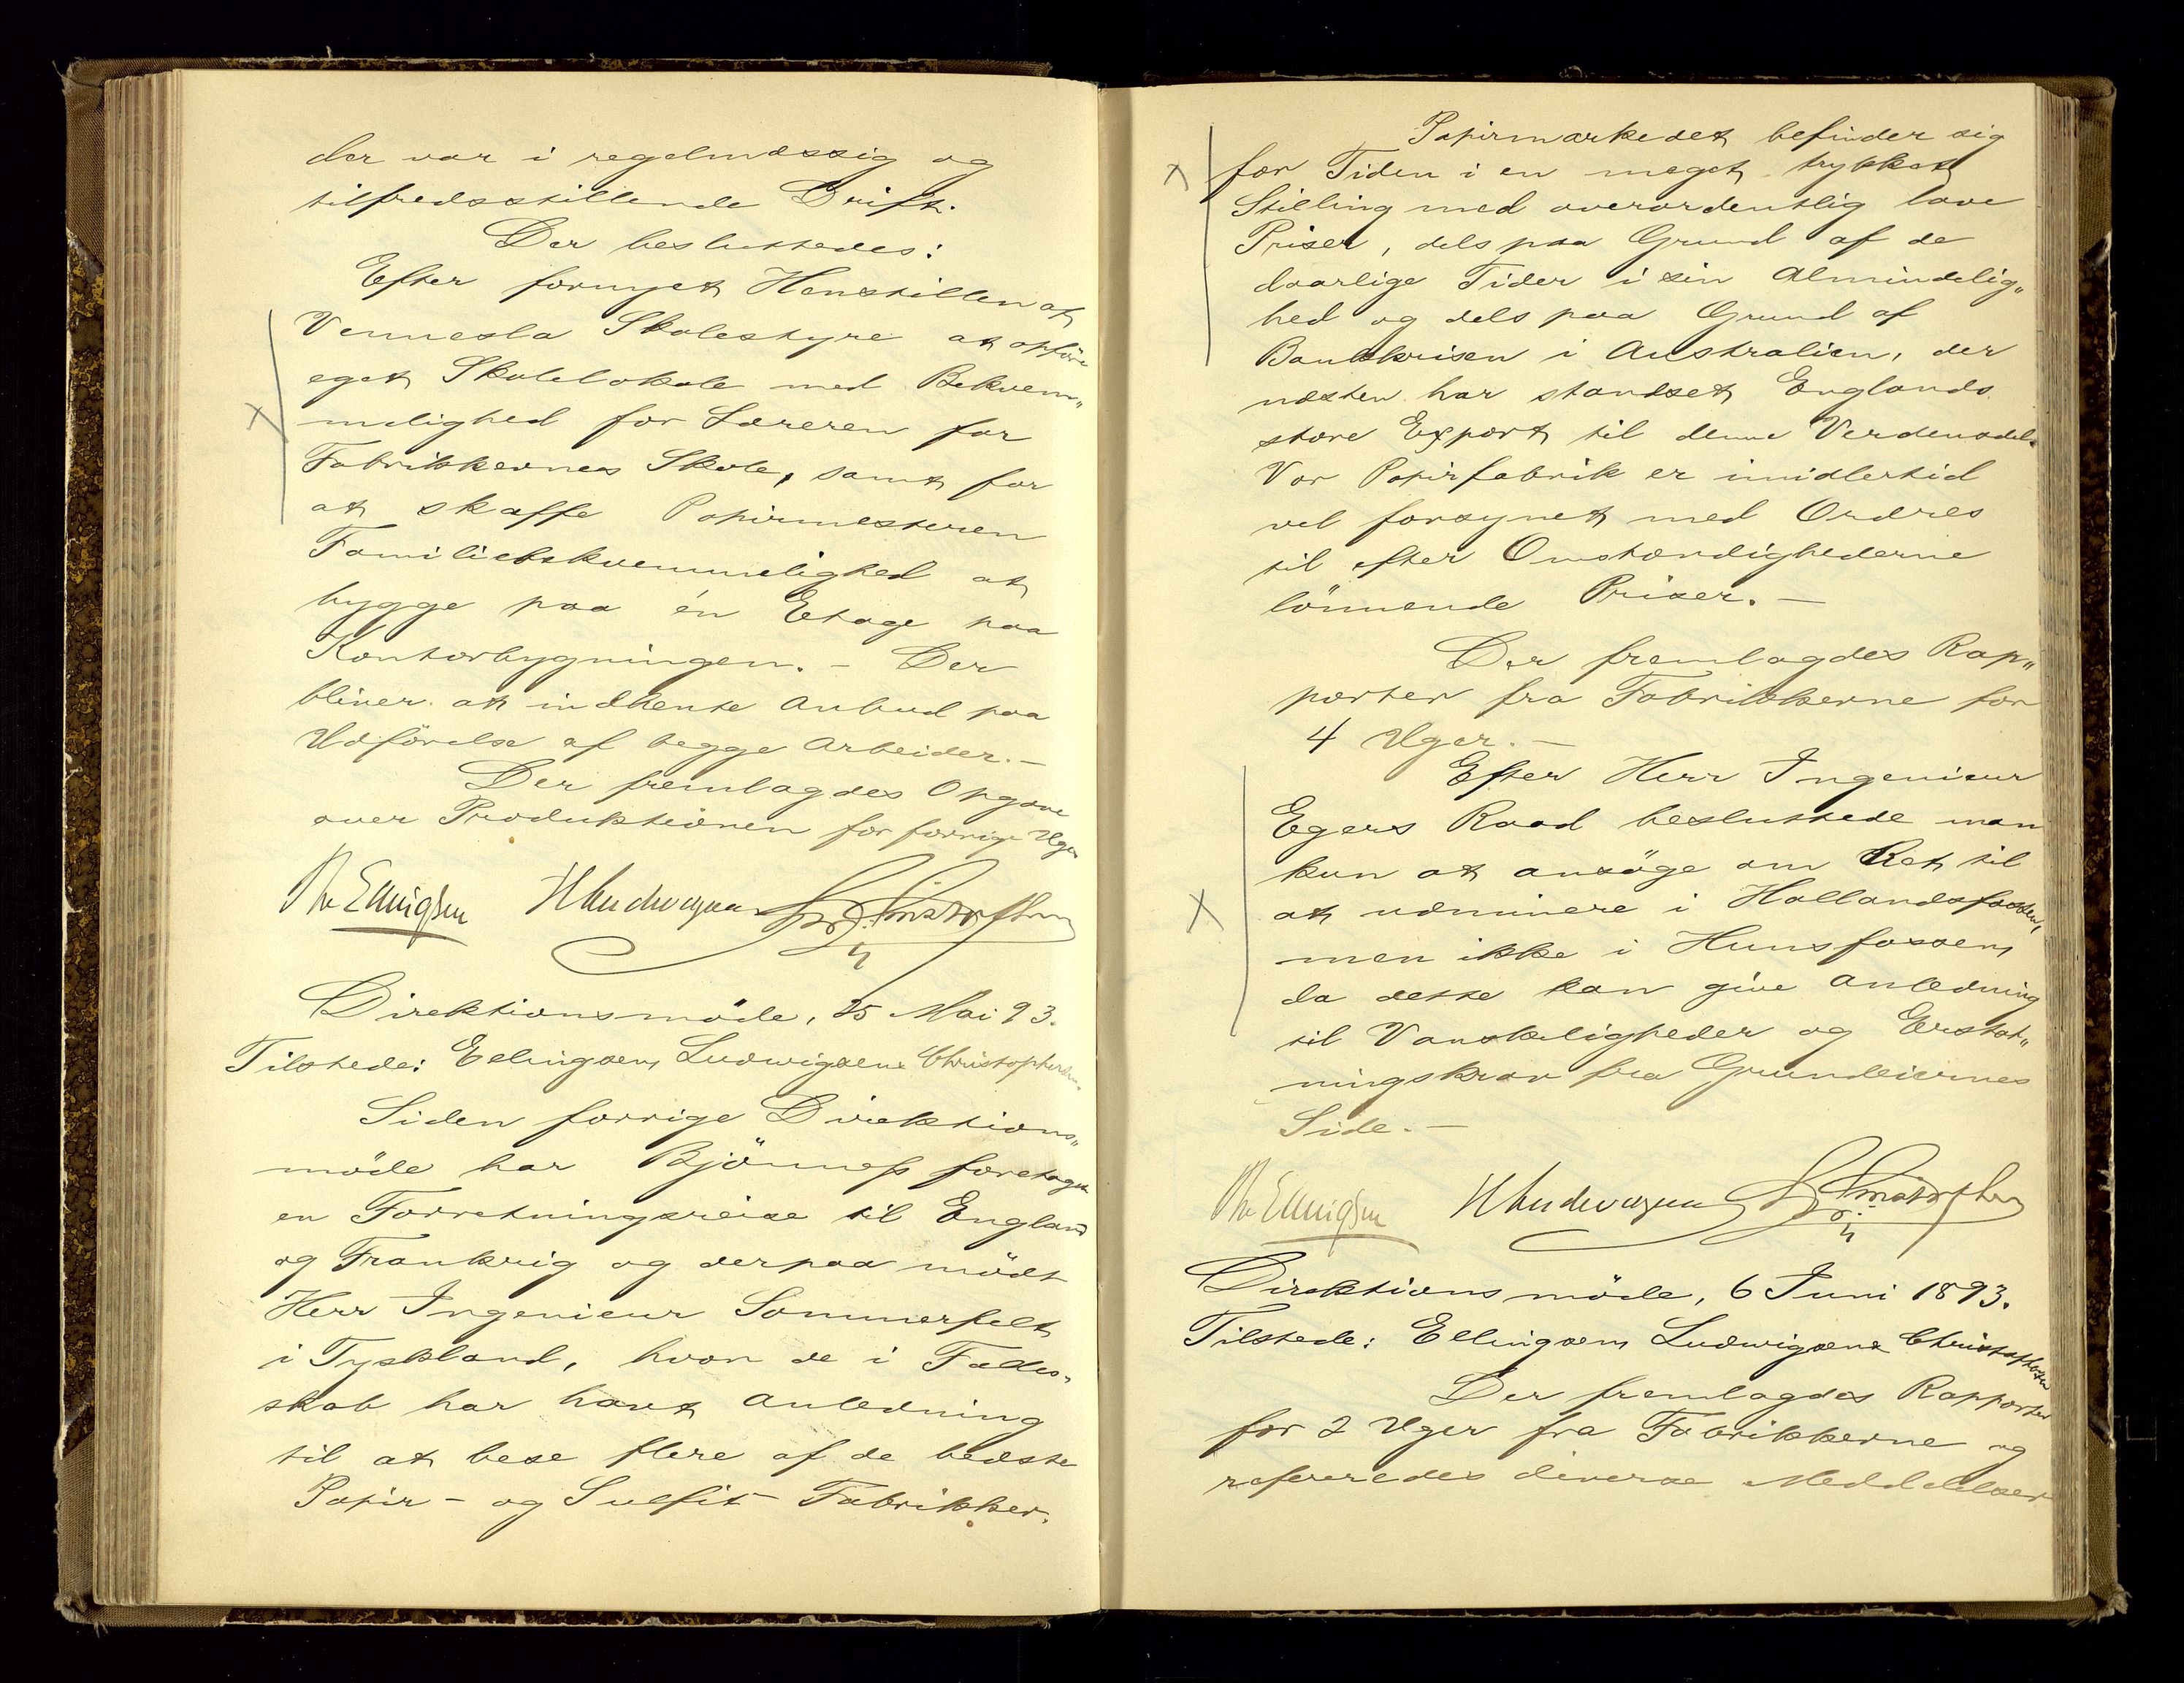 der var i regelmæssig og
tilfredsstillende Drift.
Der besluttedes:
Efter fornyet Henstillen af
Vennesla Skolestyre at opföre
eget Skolelokale med Bekvem„
melighed for Læreren for
Fabrikkernes Skole, samt for
at skaffe Papirmesteren
Familiebekvemmelighed at
bygge paa én Etage paa
Kontorbygningen. – Der
bliver at indhente Anbud paa
Udförelse af begge Arbeider. –
Der fremlagdes Opgave
over Produktionen for forrige Uge
Th Ellingsen HLudwigsen
Direktionsmöde, 25 Mai 93.
Tilstede: Ellingsen, Ludwigsen & Christophersen.
Siden forrige Direktions„
möde har Bjönness foretaget
en Forretningsreise til England
og Frankrig og derpaa mödt
Herr Ingenieur Sommerfelt
i Tyskland, hvor de i Fælles„
skab har havt Anledning
til at bese flere af de bedste
Papir- og Sulfit- Fabrikker.
Papirmarkedet befinder sig
for Tiden i en meget trykket
Stilling med overordentlig lave
Priser, dels paa Grund af de
daarlige Tider i sin Almindelig„
hed og dels paa Grund af
Bankkrisen i Australien, der
næsten har standset Englands
store Export til denne Verdensdel.
Vor Papirfabrik er imidlertid
vel forsynet med Ordres
til efter Omstændighederne
lönnende Priser. –
Der fremlagdes Rap„
porter fra Fabrikkerne for
4 Uger. –
Efter Herr Ingenieur
Egers Raad besluttede man
kun at ansöge om Ret til
at udminere i Hallandsfossen,
men ikke i Hunsfossen,
da dette kan give Anledning
til Vanskeligheder og Erstat„
ningskrav fra Grundeiernes
Side. –
Th Ellingsen HLudwigsen
Direktionsmöde, 6 Juni 1893.
Tilstede: Ellingsen, Ludwigsen & Christophersen
Der fremlagdes Rapporter
for 2 Uger fra Fabrikkerne og
refereredes diverse Meddelelser